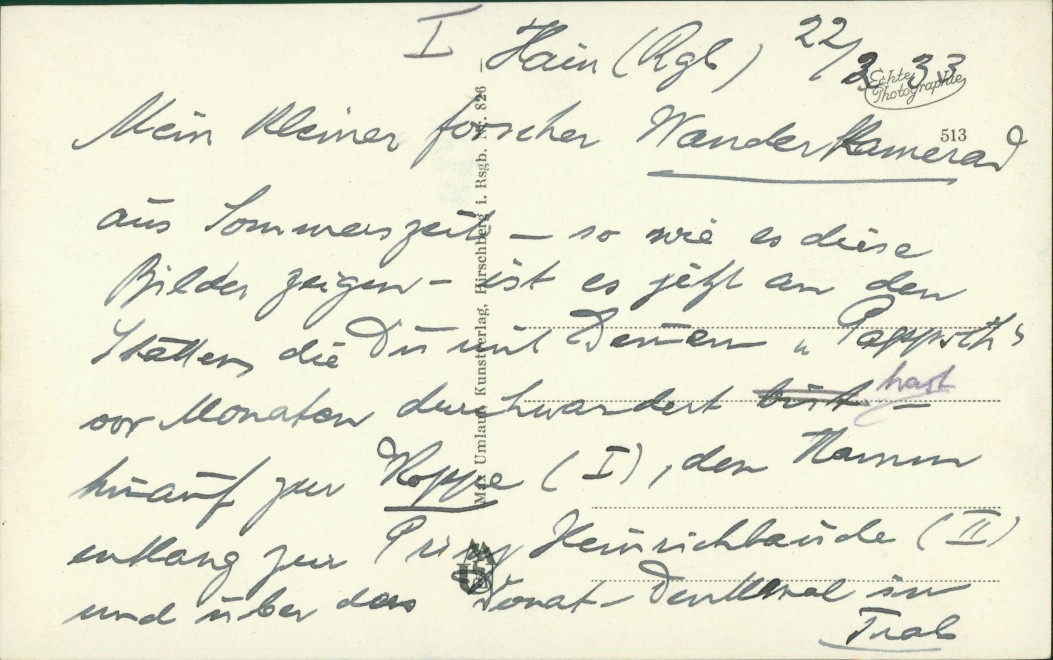 I Hain (Rgb) 22/3 33
Echte Photographie
513
Mein kleiner forscher Wanderkamerad
aus Sommerszeit – so wie es diese
Bilder zeigen – ist es jetzt an den
Stätten die Du mit Deinem „Pappsch"
vor Monaten durchwandert bist hast –
hinauf zur Koppe (I), den Kamm
entlang zur Prinz Heinrichbaude (II)
und über das Donat-Denkmal in
Tal
Max Umlauf, Kunstverlag, Hirschberg i. Rsgb. Nr. 826 –